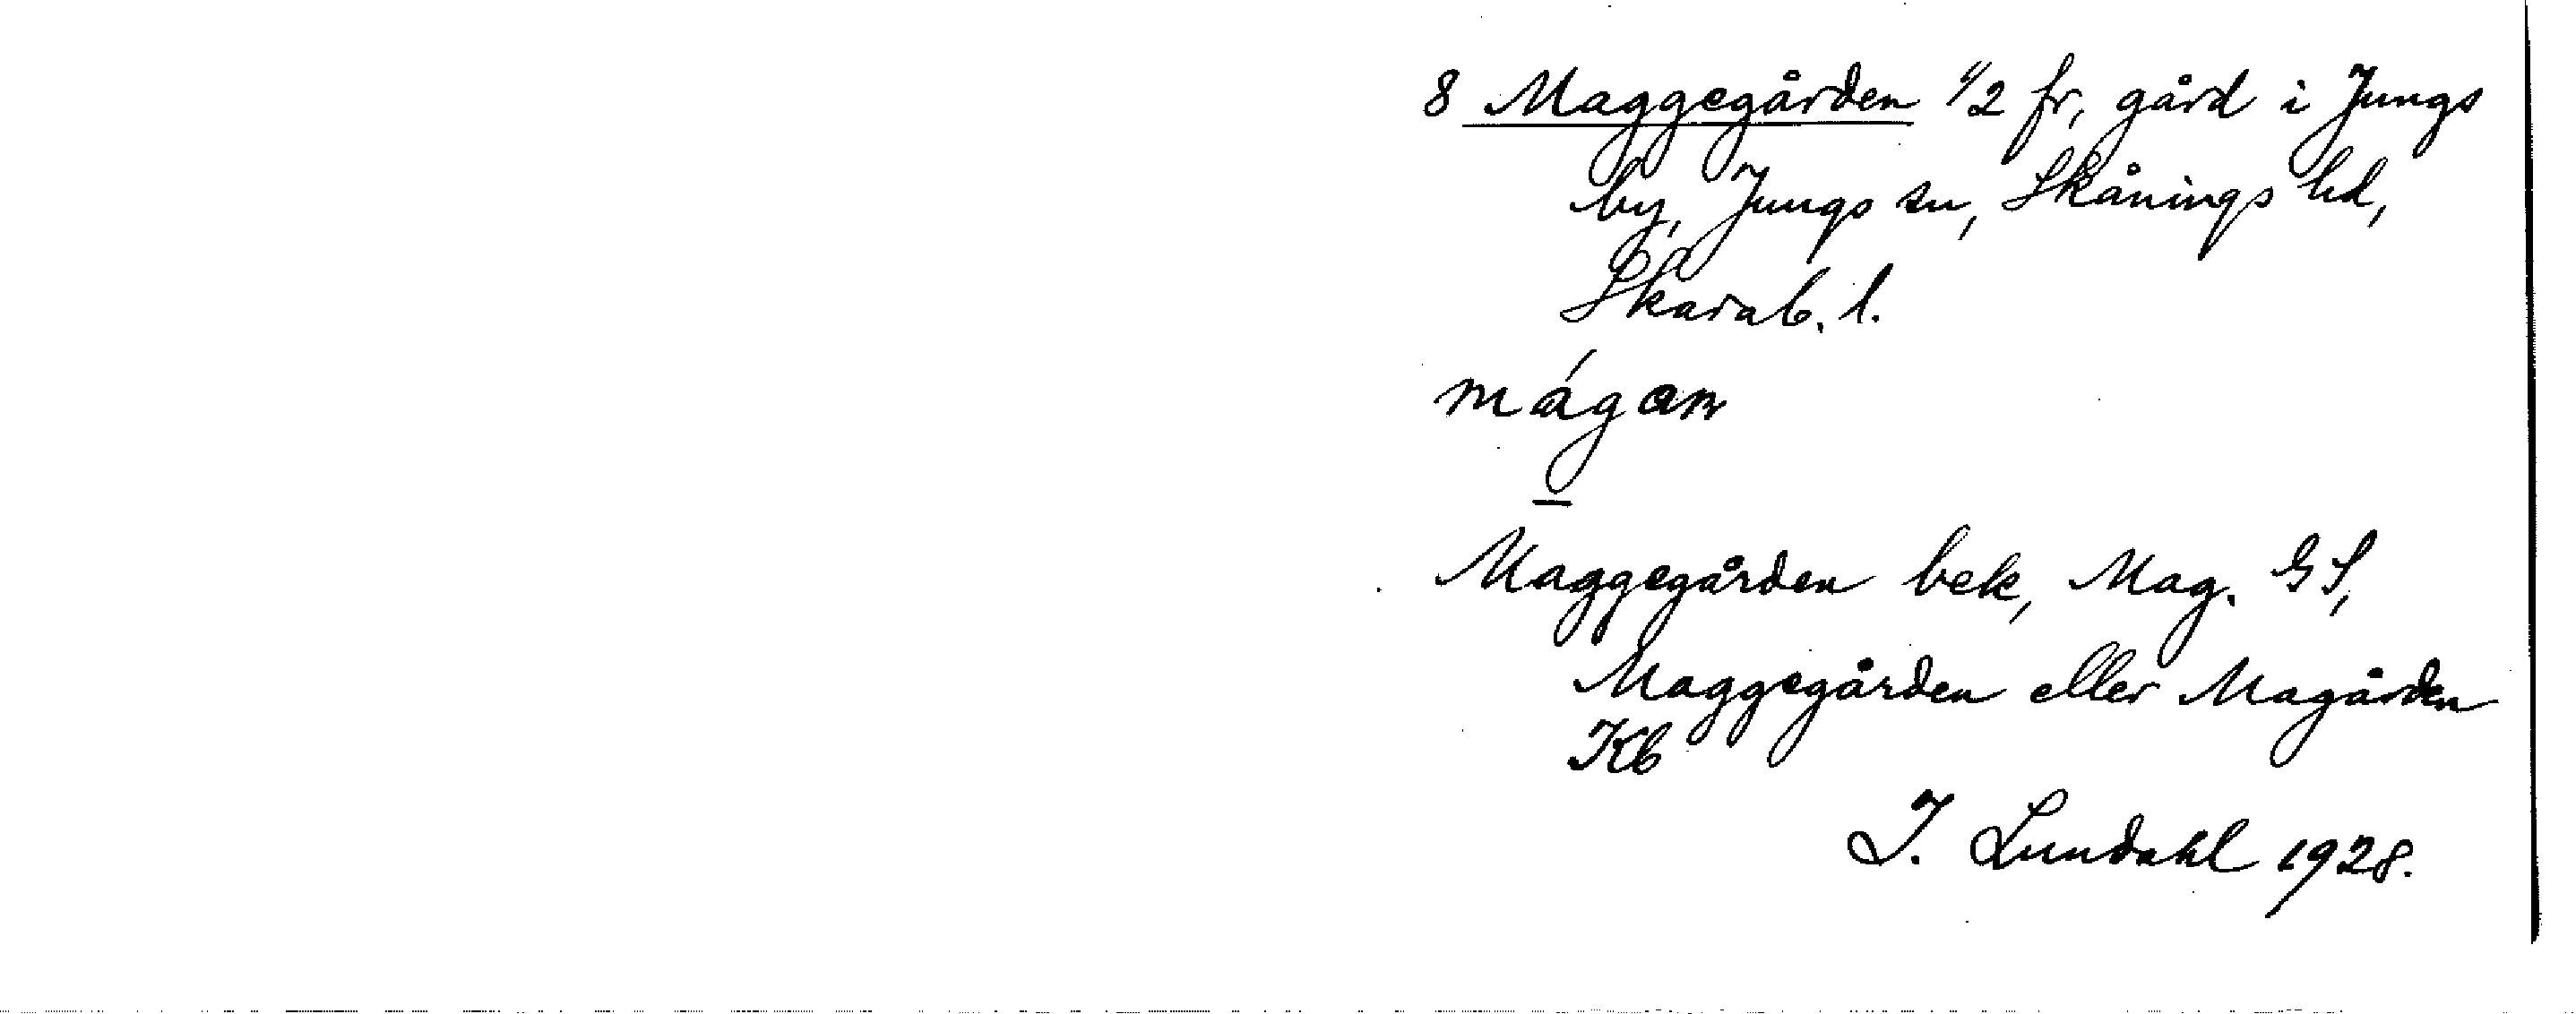 8 Maggegården 1/2 fr, gård i Jungs
by, Jungs sn, Skånings hd,
Skarab. l.
mágan
Maggegården bek, Mag. GS,
Maggegården eller Magården
Kb
I. Lundahl 1928.